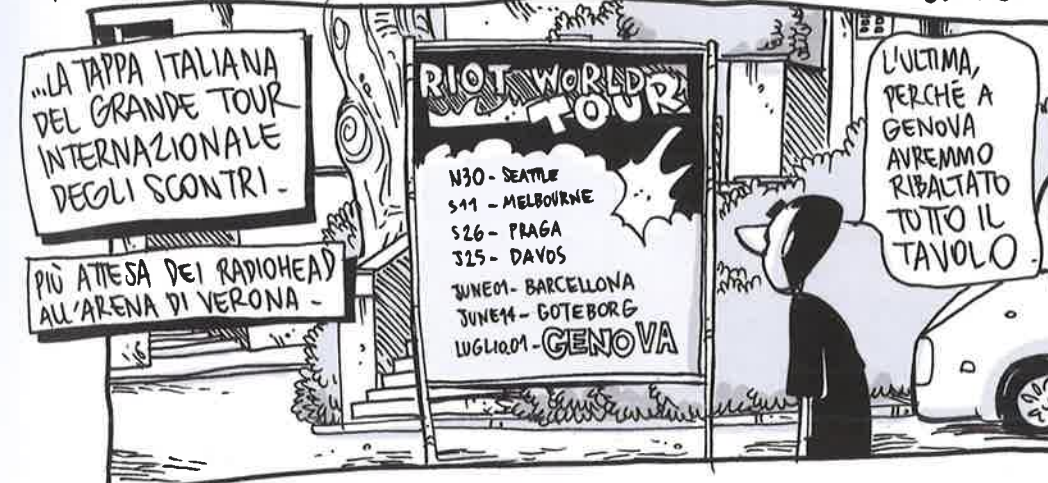 ...LA TAPPA ITALIANA
DEL GRANDE TOUR
INTERNAZIONALE
DEGLI SCONTRI -
PIÙ ATTESA DEI RADIOHEAD
ALL'ARENA DI VERONA -
RIOT WORLD
TOUR
N30 - SEATTLE
S11 - MELBOURNE
S26 - PRAGA
J25 - DAVOS
JUNE01 - BARCELLONA
JUNE14 - GOTEBORG
LUGLIO01 - GENOVA
L'ULTIMA,
PERCHÉ A
GENOVA
AVREMMO
RIBALTATO
TUTTO IL
TAVOLO.